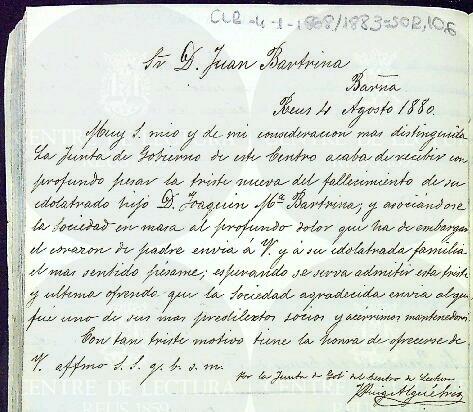 CLR-4-1-1868/1883=SOR,106
Sr D. Juan Bartrina
Barña
Reus 4 Agosto 1880.
Muy S. mio y de mi consideracion mas distinguida
La Junta de Gobierno de este Centro acaba de recibir con
profundo pesar la triste nueva del fallecimiento de su
idolatrado hijo D. Joaquin Mª Bartrina; y asociandose
la Sociedad en masa al profundo dolor que ha de embargar
el corazon de padre envia á V. y á su idolatrada familia
el mas sentido pesame; esperando se serva admitir esta triste
y ultima ofrenda que la Sociedad agradecida envia al que
fué uno de sus mas predilectos socios y acerrimos mantenedores.
Con tan triste motivo tiene la honra de ofrecerse de
V. affmo S. S. q. b. s. m.
Por la Junta de Gobº del Centro de Lectura
CENTRE DE LECTURA